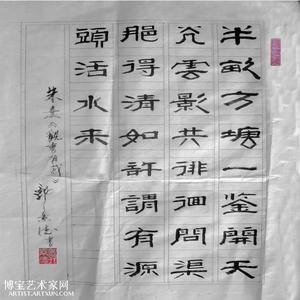 半畝方塘一鉴開天
光雲影共徘徊問渠
那得清如許謂有源
頭活水来
朱熹《觀書有感》
博宝艺术家网
ARTIST.ARTXUN.COM